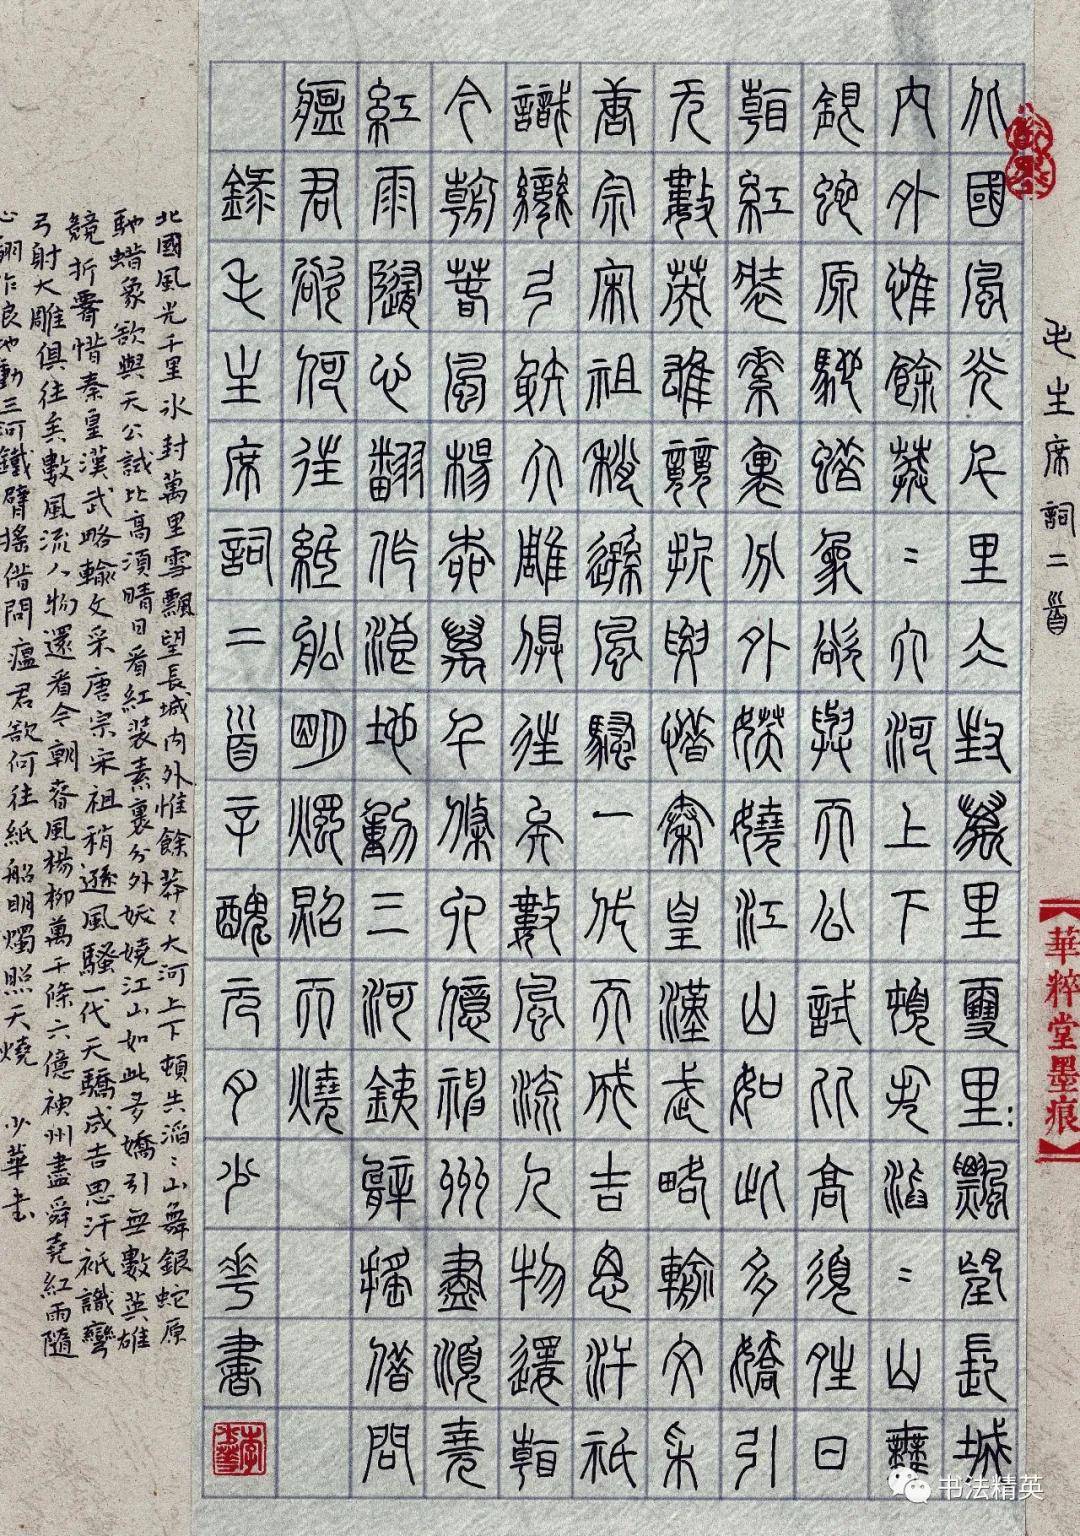 毛主席詞二首
【華粹堂墨痕】
北國風光千里冰封萬里雪里:飄望長城
内外惟餘莽〻大河上下頓失滔〻山舞
銀蛇原馳蜡象欲與天公試比高須晴日
看紅裝素裹分外妖嬈江山如此多嬌引
无數英雄競折要惜秦皇漢武略輸文采
唐宗宋祖稍遜風騷一代天成吉思汗祇
識彎弓射大雕俱往矣數風流人物還看
今朝春風楊柳萬千條六億神州盡舜堯
紅雨隨心翻作浪地動三河鐵臂搖借問
瘟君欲何往紙船明燭照天燒
錄毛主席詞二首辛醜元月少華書
北國風光千里冰封萬里雪飄望長城内外惟餘莽〻大河上下頓失滔〻山舞銀蛇原
馳蜡象欲與天公試比高須晴日看紅装素裹分外妖嬈江山如此多嬌引無數英雄
競折要惜秦皇漢武略輸文采唐宗宋祖稍遜風騷一代天驕成吉思汗祇識彎
弓射大雕俱往矣數風流人物還看今朝春風楊柳萬千條六億神州盡舜堯紅雨隨
心翻作浪地動三河鐵臂搖借問瘟君欲何往紙船明燭照天燒 少華書
书法精英